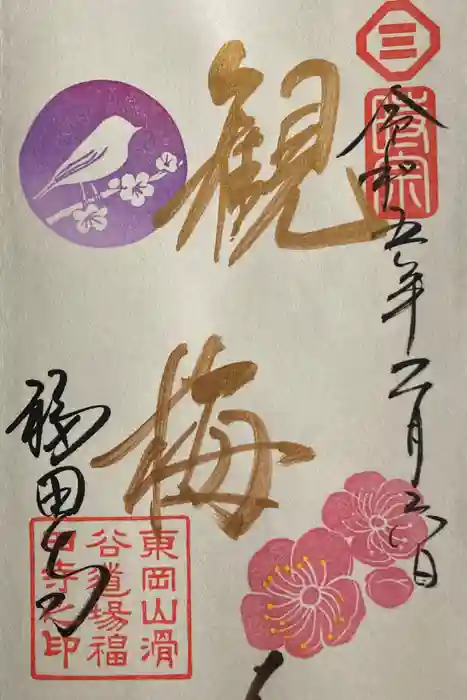 三
時宗
令和五年二月六日
観梅
福田寺
東岡山滑
谷道場福
田寺之印